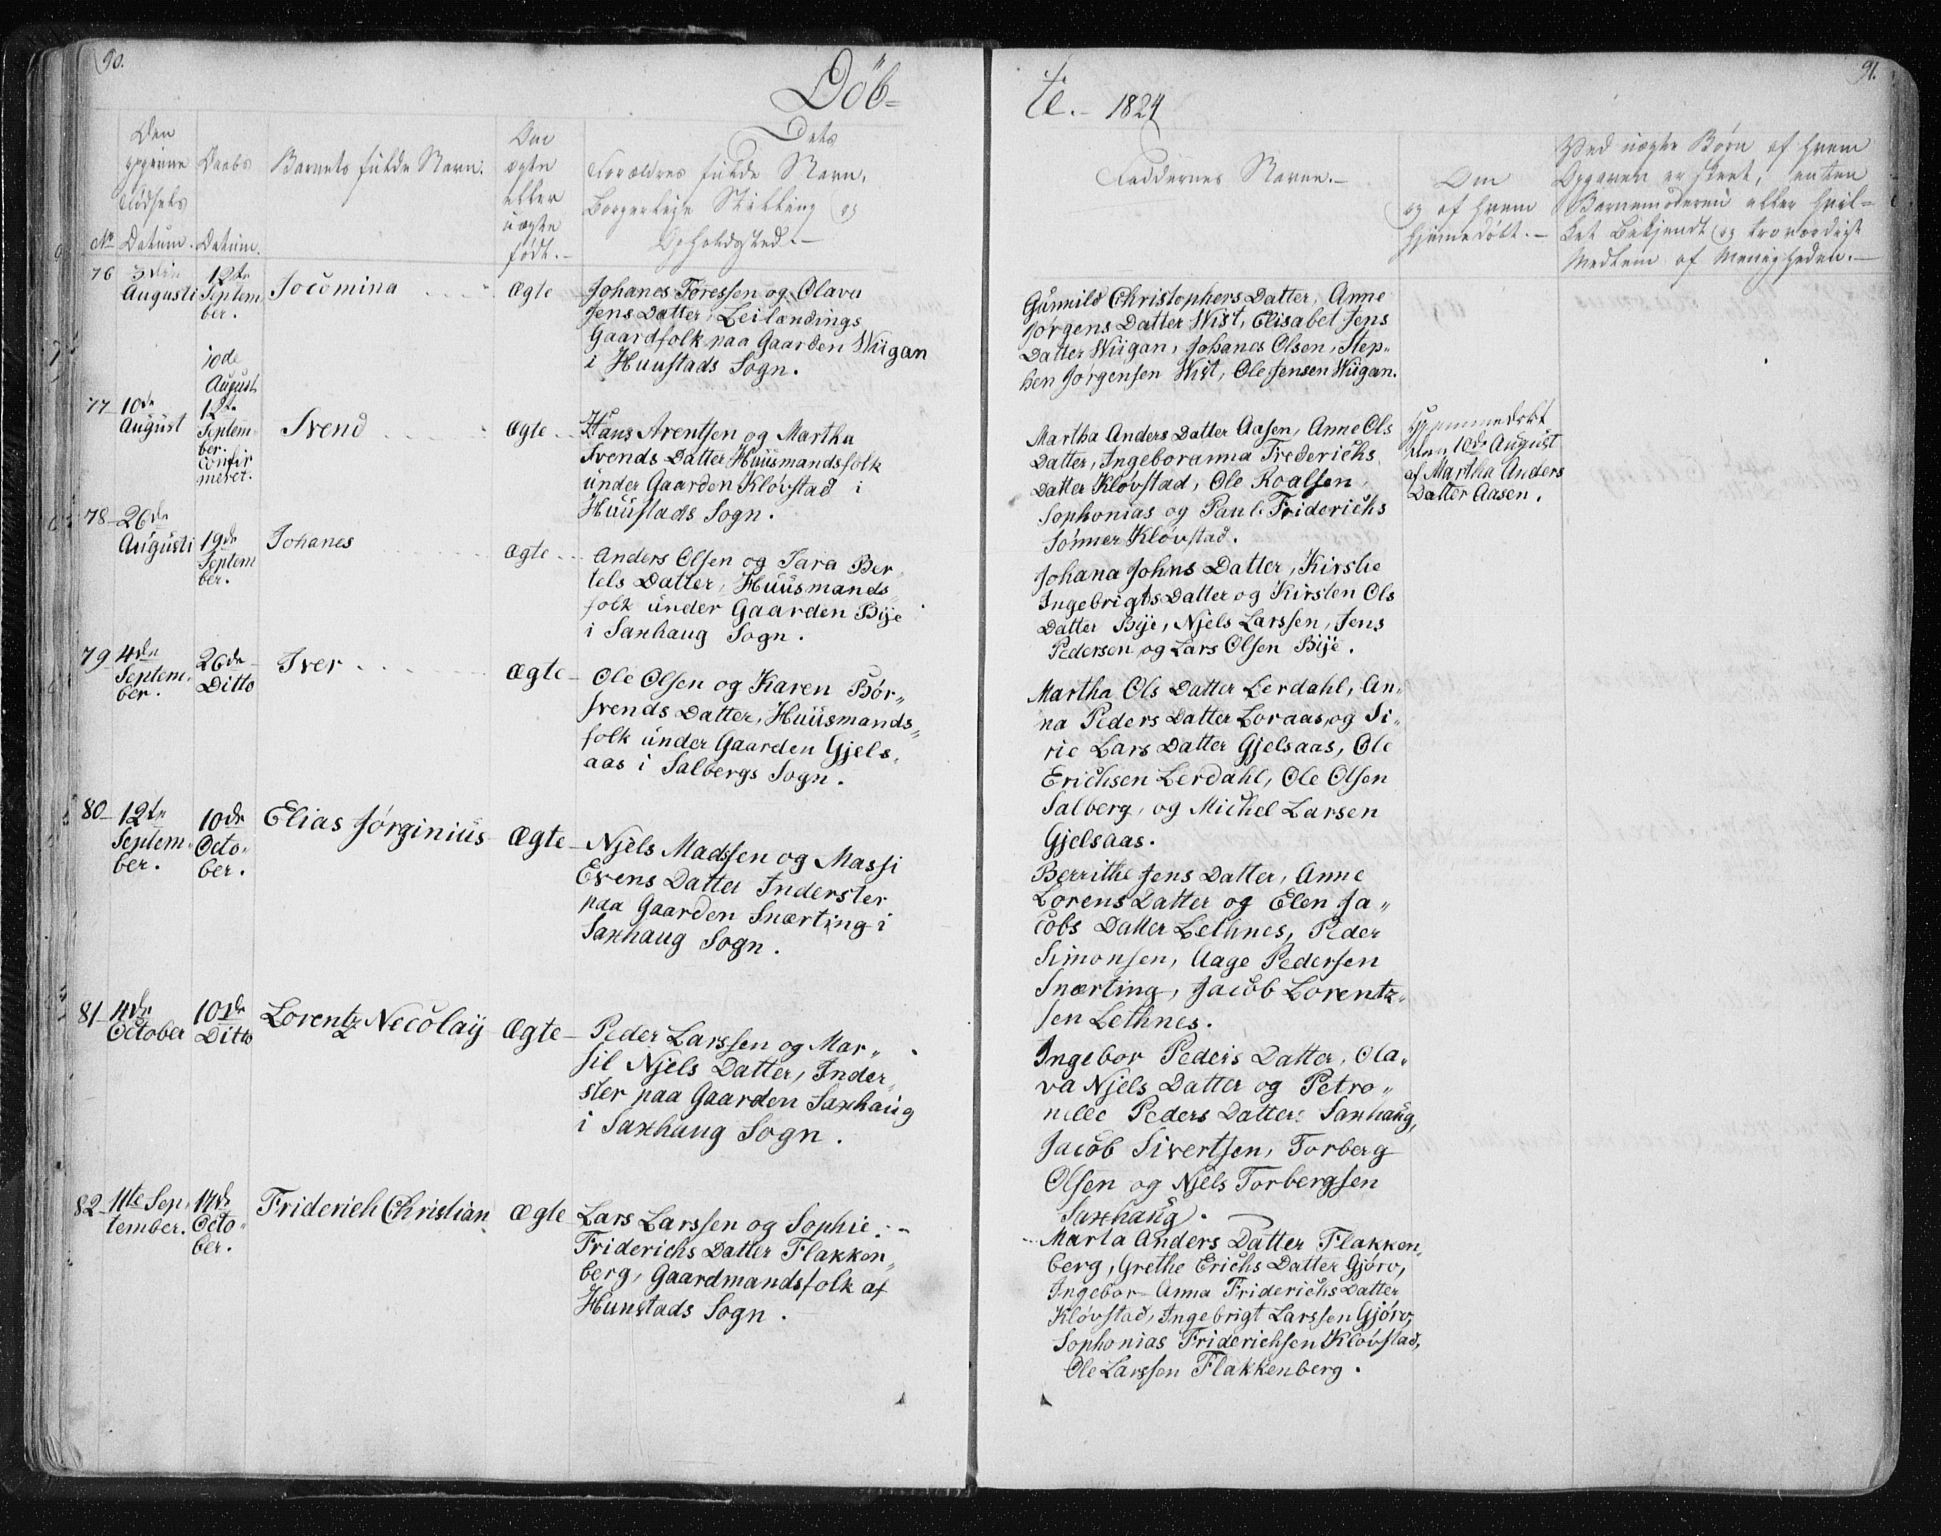 90.
Døb=
te. - 1824
91.
Den
opgivne
Fødsels
Datum.
No
Daabs
Datum.
Barnets fulde Navn.
Om
ægte
eller
uægte
født.-
Dets
Forældres fulde Navn,
Borgerlige Stilling og
Opholdssted.-
Faddernes Navne.-
Om
og af hvem
hjemmedøbt.-
Ved uægte Børn af hvem
Opgaven er skeet, enten
Barnemoderen eller hvil=
ket bekjendt og troværdigt
Medlem af Menigheden.-
76
3die
Augusti
12te
Septem
ber.
Jocomina
Ægte
Johanes Toressen og Olava
Jens Datter, Leilændings
Gaardfolk paa Gaarden Wiigan
i Huustads Sogn.
Gunnild Christophers Datter, Anne
Jørgens Datter Wist, Elisabet Jens
Datter Wiigan, Johanes Olsen, Step„
hen Jørgensen Wist, Ole Jensen Wiigan.
77
10de
August
10de
August
12te
Septem
ber.
confir
meret.
Svend
Ægte
Hans Arentsen og Martha
Svends Datter Huusmandsfolk
under Gaarden Kløvstad i
Huustads Sogn.
Martha Anders Datter Aasen, Anne Ols
Datter, Ingeboranna Frederichs
Datter Kløvstad, Ole Roalsen,
Sophonias og Paul Friderichs
Sønner Kløvstad.
Hjemmedøbt
den 10de August
af Martha Anders
Datter Aasen.
78
26de
Augusti
19de
Septem
ber.
Johanes
Ægte
Anders Olsen og Sara Ber„
tels Datter, Huusmands„
folk under Gaarden Bije
i Saxhaug Sogn.
Johana Johns Datter, Kirstie
Ingebrigts Datter og Kirsten Ols
Datter Bije, Njels Larssen, Jens
Pedersen og Lars Olsen Bije.
79
4de
Septem„
ber.
26de
Ditto
Iver
Ægte
Ole Olsen og Karen Bør„
svends Datter, Huusmands„
folk under Gaarden Gjels„
aas i Salbergs Sogn.
Martha Ols Datter Lerdahl, An„
na Peders Datter Loraas, og Si„
rie Lars Datter Gjelsaas, Ole
Erichsen Lerdahl, Ole Olsen
Salberg, og Michel Larsen
Gjelsaas.
80
12te
Septem„
ber.
10de
Octo„
ber.
Elias Jørginius
Ægte
Njels Madssen og Massi
Evens Datter Inderster
paa Gaarden Snærting i
Saxhaug Sogn.
Berrithe Jens Datter, Anne
Lorens Datter og Elen Ja„
cobs Datter Lethnes, Peder
Simonsen, Aage Pedersen
Snærting, Jacob Lorentz„
sen Lethnes.
81
4de
October
10de
Ditto
Lorentz Necolaij
Ægte
Peder Larssen og Mar„
sil Njels Datter, Inder„
ster paa Gaarden Saxhaug
i Saxhaug Sogn.
Ingebor Peders Datter, Ola„
va Njels Datter og Petro„
nelle Peders Datter Saxhaug,
Jacob Sivertsen, Torberg
Olsen og Njels Torbergsen
Saxhaug.
82
11te Sep„
tember.
17de
Octo„
ber.
Friderich Christian
Ægte
Lars Larssen og Sophie
Friderichs Datter Flakken„
berg, Gaardmandsfolk af
Huustads Sogn.
Marta Anders Datter Flakken„
berg, Grethe Erichs Datter Gjørv,
Ingebor Anna Friderichs Datter
Kløvstad, Ingebrigt Larssen Gjørv,
Sophonias Friderichsen Kløvstad,
Ole Larssen Flakkenberg.